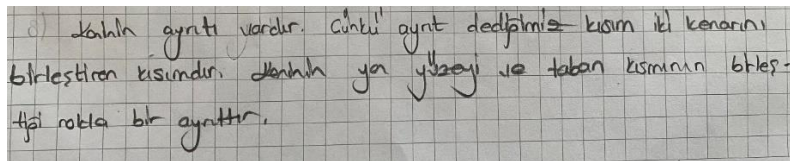 d) Konin ayrıtı vardır. Çünkü ayrıt dediğimiz kısım iki kenarını
birleştiren kısımdır. Konhin yan yüzeyi ve taban kısmının birleş-
tiği nokta bir ayrıttır.